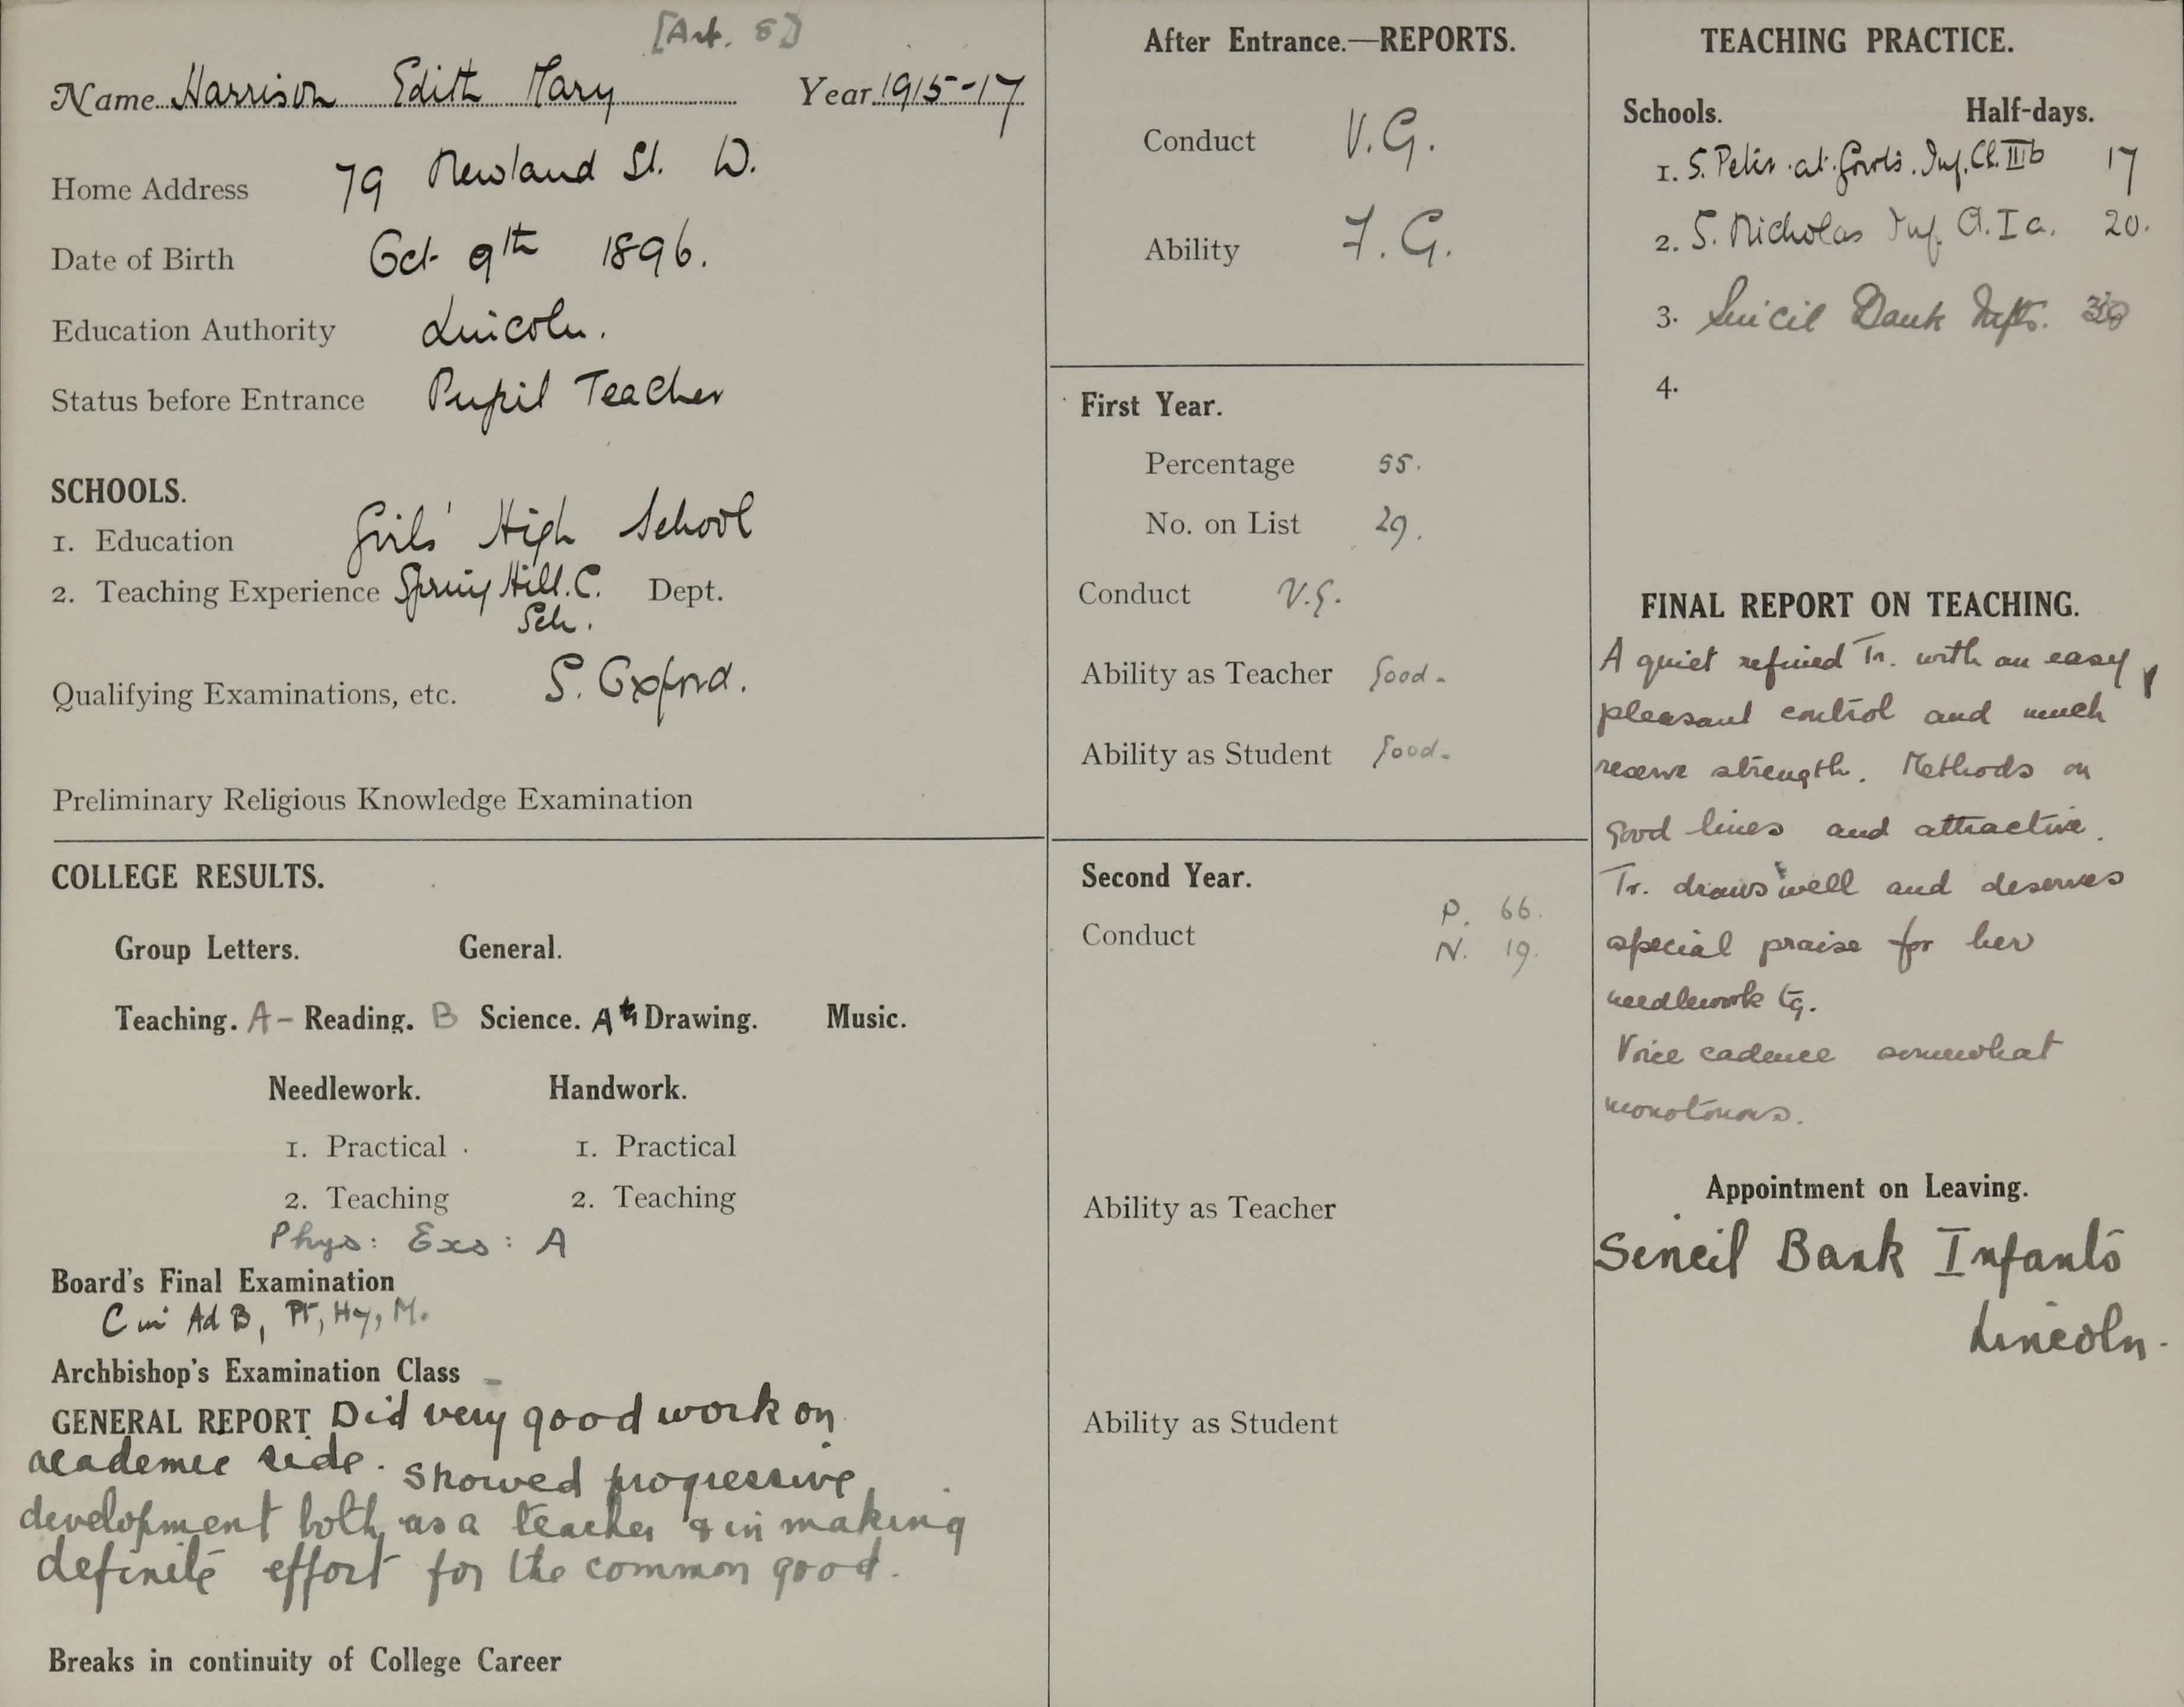 [Art. 8]
Name Harrison Edith Mary Year 1915-17
Home Address 79 Newland St. W.
Date of Birth Oct 9th 1896.
Education Authority Lincoln.
Status before Entrance Pupil Teacher
SCHOOLS.
1. Education Girls' High School
2. Teaching Experience Spring Hill. C. Dept.
Sch.
Qualifying Examinations, etc. S. Oxford.
Preliminary Religious Knowledge Examination
COLLEGE RESULTS.
Group Letters. General.
Teaching. A- Reading. B Science. A Drawing. Music.
Needlework. Handwork.
1. Practical 1. Practical
2. Teaching 2. Teaching
Phys: Exs: A
Board's Final Examination
C in Ad B, Pr, Hy, M.
Archbishop's Examination Class -
GENERAL REPORT Did very good work on
academic side. Showed progressive
development both as a teacher & in making
definite effort for the common good.
Breaks in continuity of College Career
After Entrance.—REPORTS.
Conduct V.G.
Ability F.G.
First Year.
Percentage 55.
No. on List 29.
Conduct V.G.
Ability as Teacher Good-
Ability as Student Good-
Second Year.
P. 66.
Conduct
N. 19.
Ability as Teacher
Ability as Student
TEACHING PRACTICE.
Schools. Half-days.
1. S. Peter-at-Gowts. Inf. Cl. IIIb 17
2. S. Nicholas Inf. Cl. Ia. 20.
3. Sincil Bank Infts.
4.
FINAL REPORT ON TEACHING.
A quiet refined Tr. with an easy,
pleasant control and much
reserve strength. Methods on
good lines and attractive.
Tr. draws well and deserves
special praise for her
needlework tg.
Voice cadence somewhat
monotonous.
Appointment on Leaving.
Sincil Bank Infants
Lincoln.